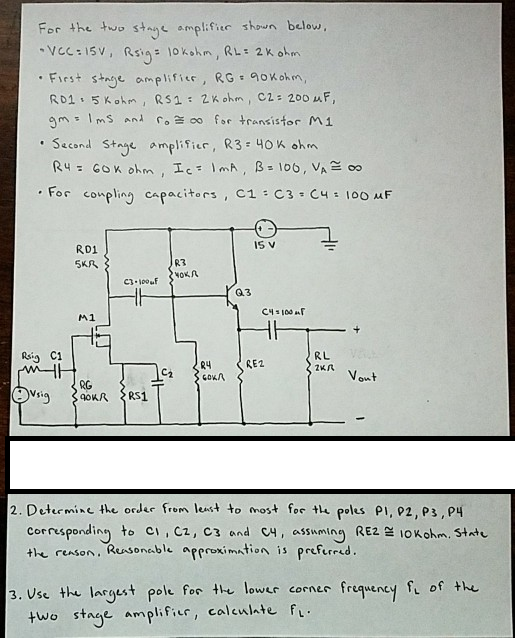 For the two stage amplifier shown below,
• VCC = 15V, Rsig = 10kohm, RL = 2K ohm
• First stage amplifier, RG = 90Kohm,
RD1 = 5Kohm, RS1 = 2Kohm, C2 = 200 μF,
gm = 1mS and ro ≅ ∞ for transistor M1
• Second Stage amplifier, R3 = 40K ohm
R4 = 60K ohm, Ic = 1mA, B = 100, VA ≅ ∞
• For coupling capacitors, C1 = C3 = C4 = 100 μF
+ -
15 V
RD1
5KΩ
R3
40KΩ
C3=100uF
Q3
M1
C4=100uF
+
Rsig C1
C2
R4
60KΩ
RE2
RL
2KΩ
Vout
Vsig
RG
90KΩ
RS1
-
2. Determine the order from least to most for the poles P1, P2, P3, P4
corresponding to C1, C2, C3 and C4, assuming RE2 ≅ 10Kohm. State
the reason. Reasonable approximation is preferred.
3. Use the largest pole for the lower corner frequency fL of the
two stage amplifier, calculate fL.